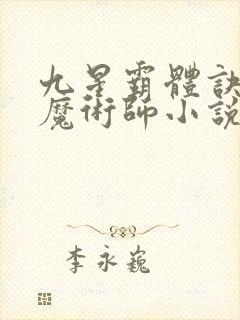 九星霸體訣
魔術師小說
李永巍